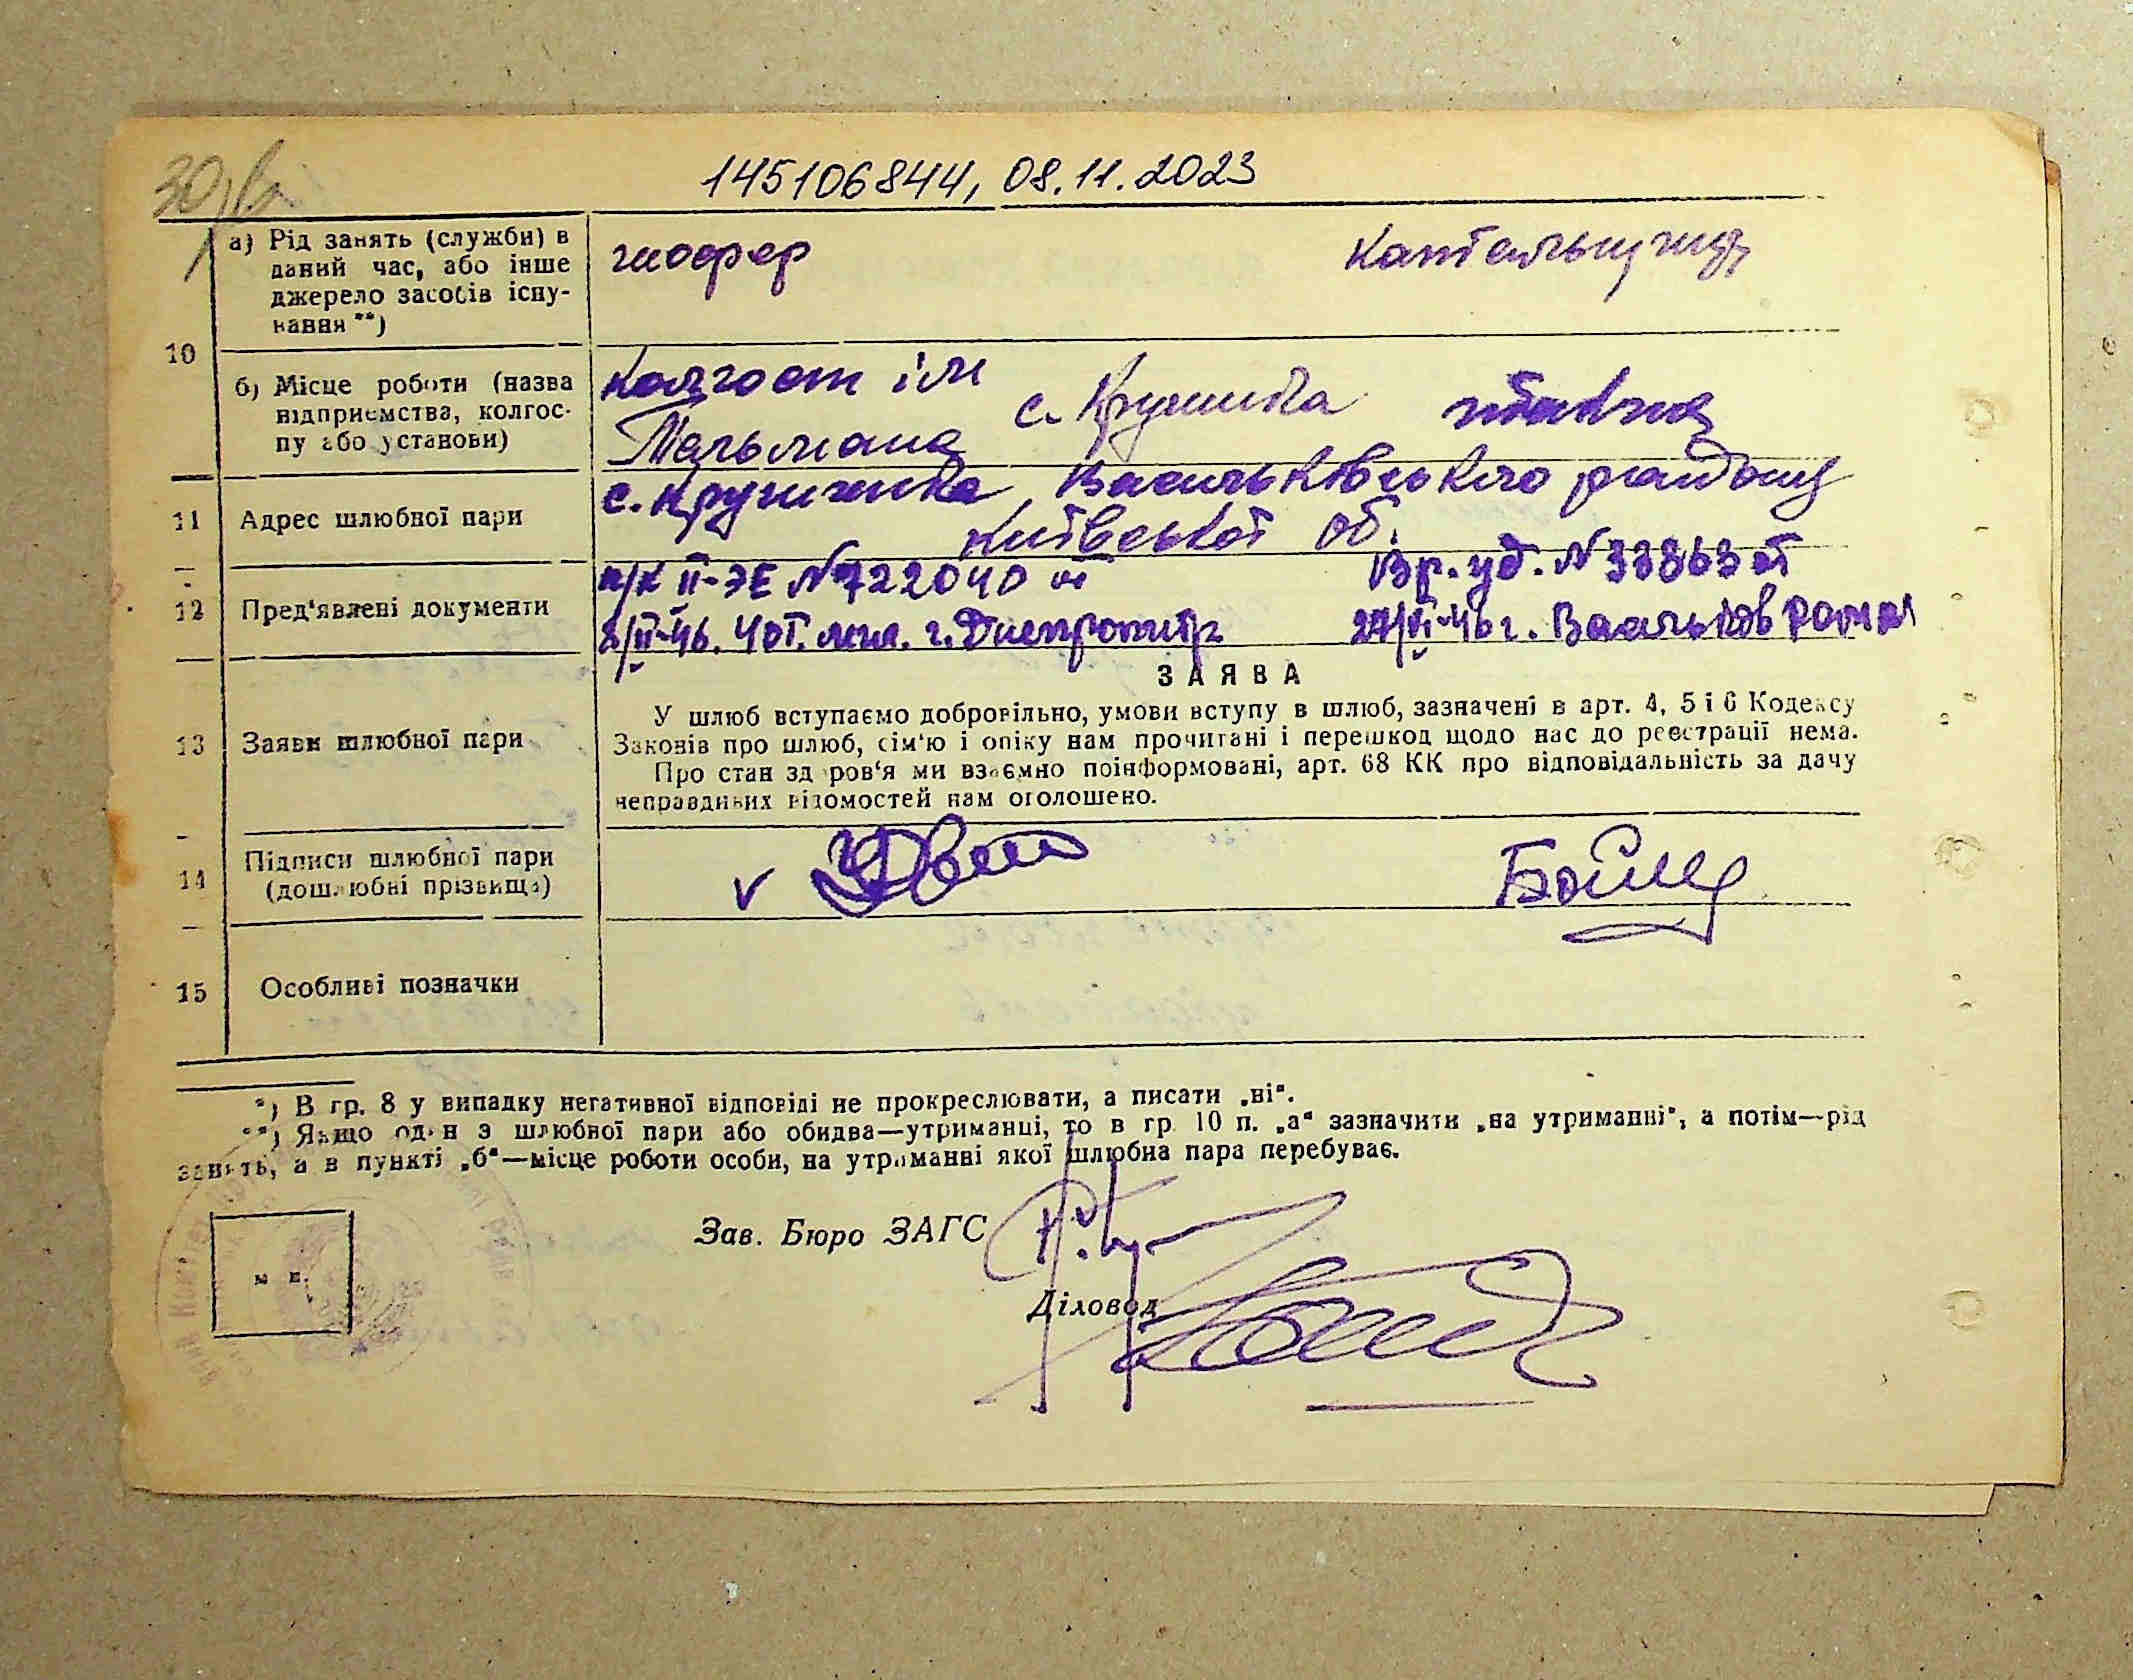 145106844, 08.11.2023
10
а) Рід занять (служби) в
даний час, або інше
джерело засобів існу-
вання **)
шофер
б) Місце роботи (назва
відприємства, колгос-
пу або установи)
колгосп ім
Тельмана с. Крушинка
11 Адрес шлюбної пари
с. Крушинка Васильківського району
Київської об.
12 Пред'явлені документи
II-ЭЕ №722040 от Вр. уд. № 33863 от
46. 4 от. мил. г. Днепропетр 46 г. Васильков
13 Заяви шлюбної пари
ЗАЯВА
У шлюб вступаємо добровільно, умови вступу в шлюб, зазначені в арт. 4, 5 і 6 Кодексу
Законів про шлюб, сім'ю і опіку нам прочитані і перешкод щодо нас до реєстрації нема.
Про стан здоров'я ми взаємно поінформовані, арт. 68 КК про відповідальність за дачу
неправдивих відомостей нам оголошено.
14 Підписи шлюбної пари
(дошлюбні прізвища)
v
15 Особливі позначки
*) В гр. 8 у випадку негативної відповіді не прокреслювати, а писати „ні".
**) Якщо один з шлюбної пари або обидва—утриманці, то в гр 10 п. „а" зазначити „на утриманні", а потім—рід
занять, а в пункті „б"—місце роботи особи, на утриманні якої шлюбна пара перебуває.
Зав. Бюро ЗАГС
м п.
Діловод